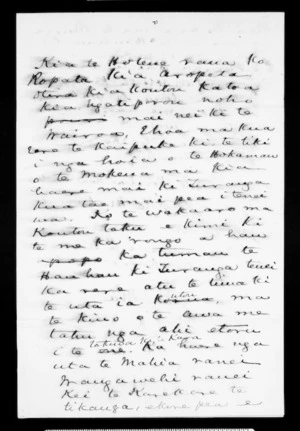 Kia te Hotene raua ko
Ropata kia Aropeta
otira kia koutou katoa
kia ngatiporou noho
mai nei ki te
Wairoa, Ehoa ma kua
rere te Kaipuke ki te tiki
i nga hoia o te Hokamau
o te Mokena ma kia
haere mai ki Turanga
kua tae mai pea i tenei
wa. Ko te wakaaro ma
koutou taku e kimi ki
te me ka rongo a hau
ka tuman te
Hauhau ki Turanga tenei
ka rere atu te tima ki
te uta ia utou, ma
te kino o te awa me
tahu nga ahi etoru
i te Ka huare nga
uta te Mahia ranei
Wangawehi ranei
kei te Karekare te
tikanga, ekore pea e